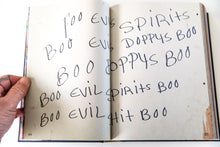 BOO EVIL SPIRITS
BOO EVIL DOPPYS BOO
BOO DOPPYS BOO
BOO EVIL SPIRITS BOO
BOO EVIL SHIT BOO